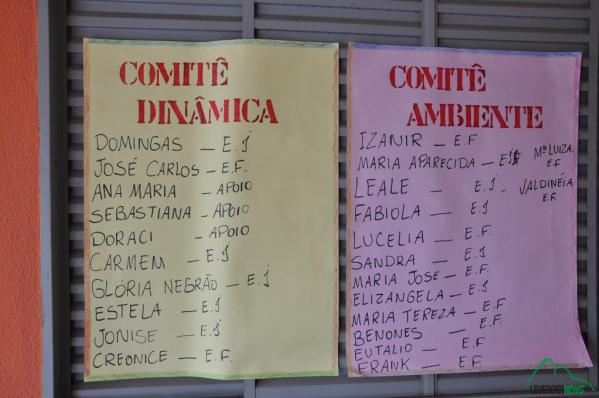 COMITÊ
DINÂMICA
DOMINGAS – E.J
JOSÉ CARLOS – E.F.
ANA MARIA – APOIO
SEBASTIANA – APOIO
DORACI – APOIO
CARMEM – E.J
GLÓRIA NEGRÃO – E.J
ESTELA – E.J
JONISE – E.J
CREONICE – E.F.
COMITÊ
AMBIENTE
IZANIR – E.F
MARIA APARECIDA – E.J Mª LUIZA E.F
LEALE – E.J – VALDINÉIA E.F.
FABIOLA – E.J
LUCELIA – E.F.
SANDRA – E.J
MARIA JOSE – E.F.
ELIZANGELA – E.J
MARIA TEREZA – E.F
BENONES – E.F.
EUTALIO – E.F
FRANK – E.F.